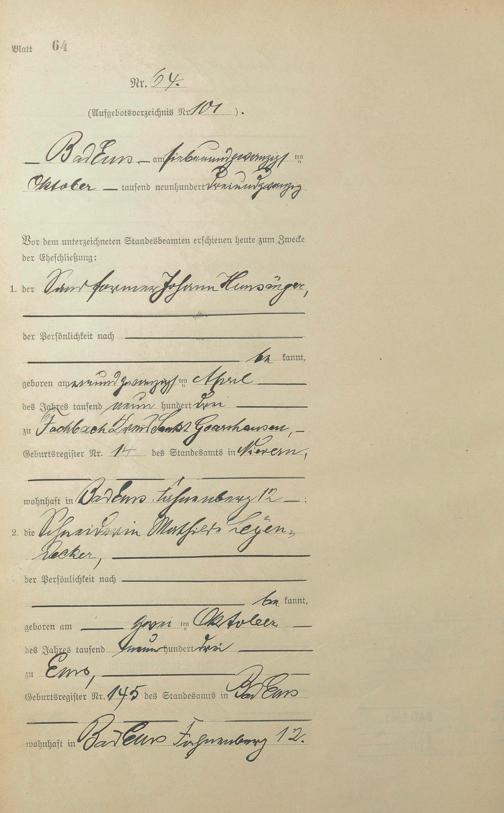 Blatt 64
Nr. 64.
(Aufgebotsverzeichnis Nr. 101 ).
Bad Ems am siebenundzwanzigsten
Oktober tausend neunhundert dreiundzwanzig
Vor dem unterzeichneten Standesbeamten erschienen heute zum Zwecke
der Eheschließung:
1. der Sandformer Johann Hunsänger,
der Persönlichkeit nach
be kannt,
geboren am neunundzwanzigsten April
des Jahres tausend neun hundert drei
zu Fachbach Sankt Goarshausen,
Geburtsregister Nr. des Standesamts in Nievern,
wohnhaft in Bad Ems Fahnenberg 12 ;
2. die Schneiderin Mathilde Leyen=
decker,
der Persönlichkeit nach
be kannt,
geboren am zwei ten Oktober
des Jahres tausend neun hundert drei
zu Ems,
Geburtsregister Nr. 145 des Standesamts in Bad Ems
wohnhaft in Bad Ems Fahnenberg 12.